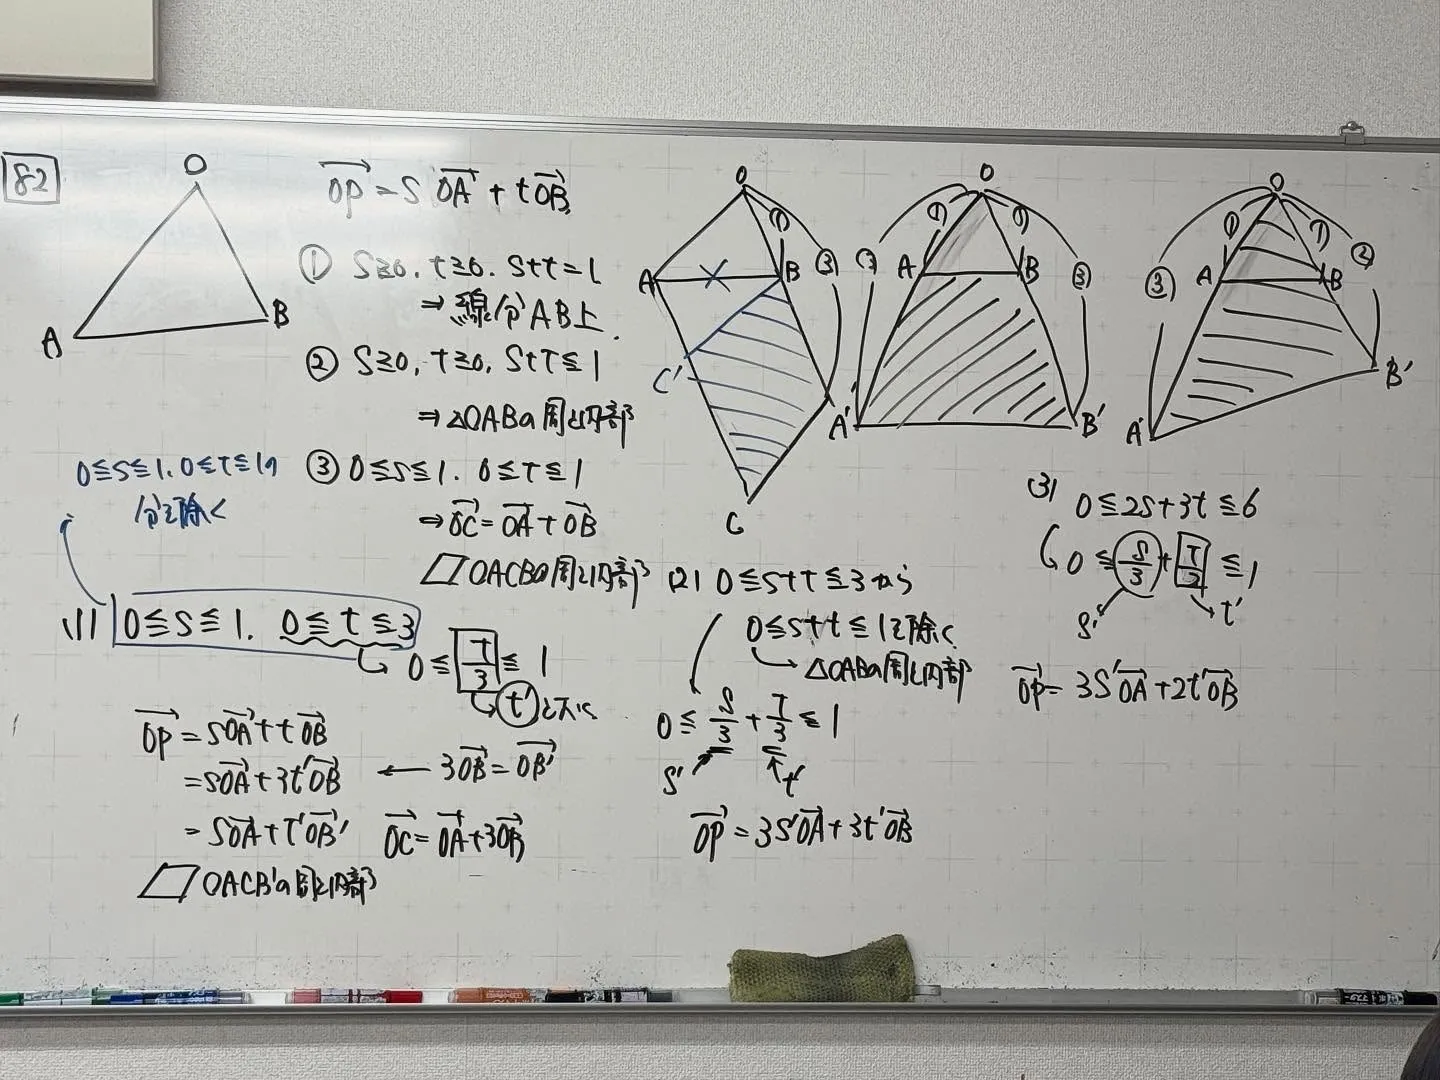 82
O
A
B
OP→ = sOA→ + tOB→
① s≧0, t≧0, s+t=1
⇒ 線分AB上
② s≧0, t≧0, s+t≦1
⇒ △OABの周と内部
③ 0≦s≦1, 0≦t≦1
⇒ OC→ = OA→ + OB→
▱OACBの周と内部
0≦s≦1, 0≦t≦1の
分を除く
(1) 0≦s≦1, 0≦t≦3
0≦ t/3 ≦1
t'とおく
OP→ = sOA→ + tOB→
= sOA→ + 3t'OB→ ← 3OB→ = OB'→
= sOA→ + t'OB'→ OC→ = OA→ + 3OB→
▱OACB'の周と内部
O
①
A
B
③
C'
A'
C
(2) 0≦s+t≦3から
0≦s+t≦1を除く
△OABの周と内部
0≦ s/3 + t/3 ≦1
s' t'
OP→ = 3s'OA→ + 3t'OB→
O
① ①
A B
③
A' B'
O
① ①
②
A B
③
B'
A'
(3) 0≦2s+3t≦6
0≦ s/3 + t/2 ≦1
s' t'
OP→ = 3s'OA→ + 2t'OB→